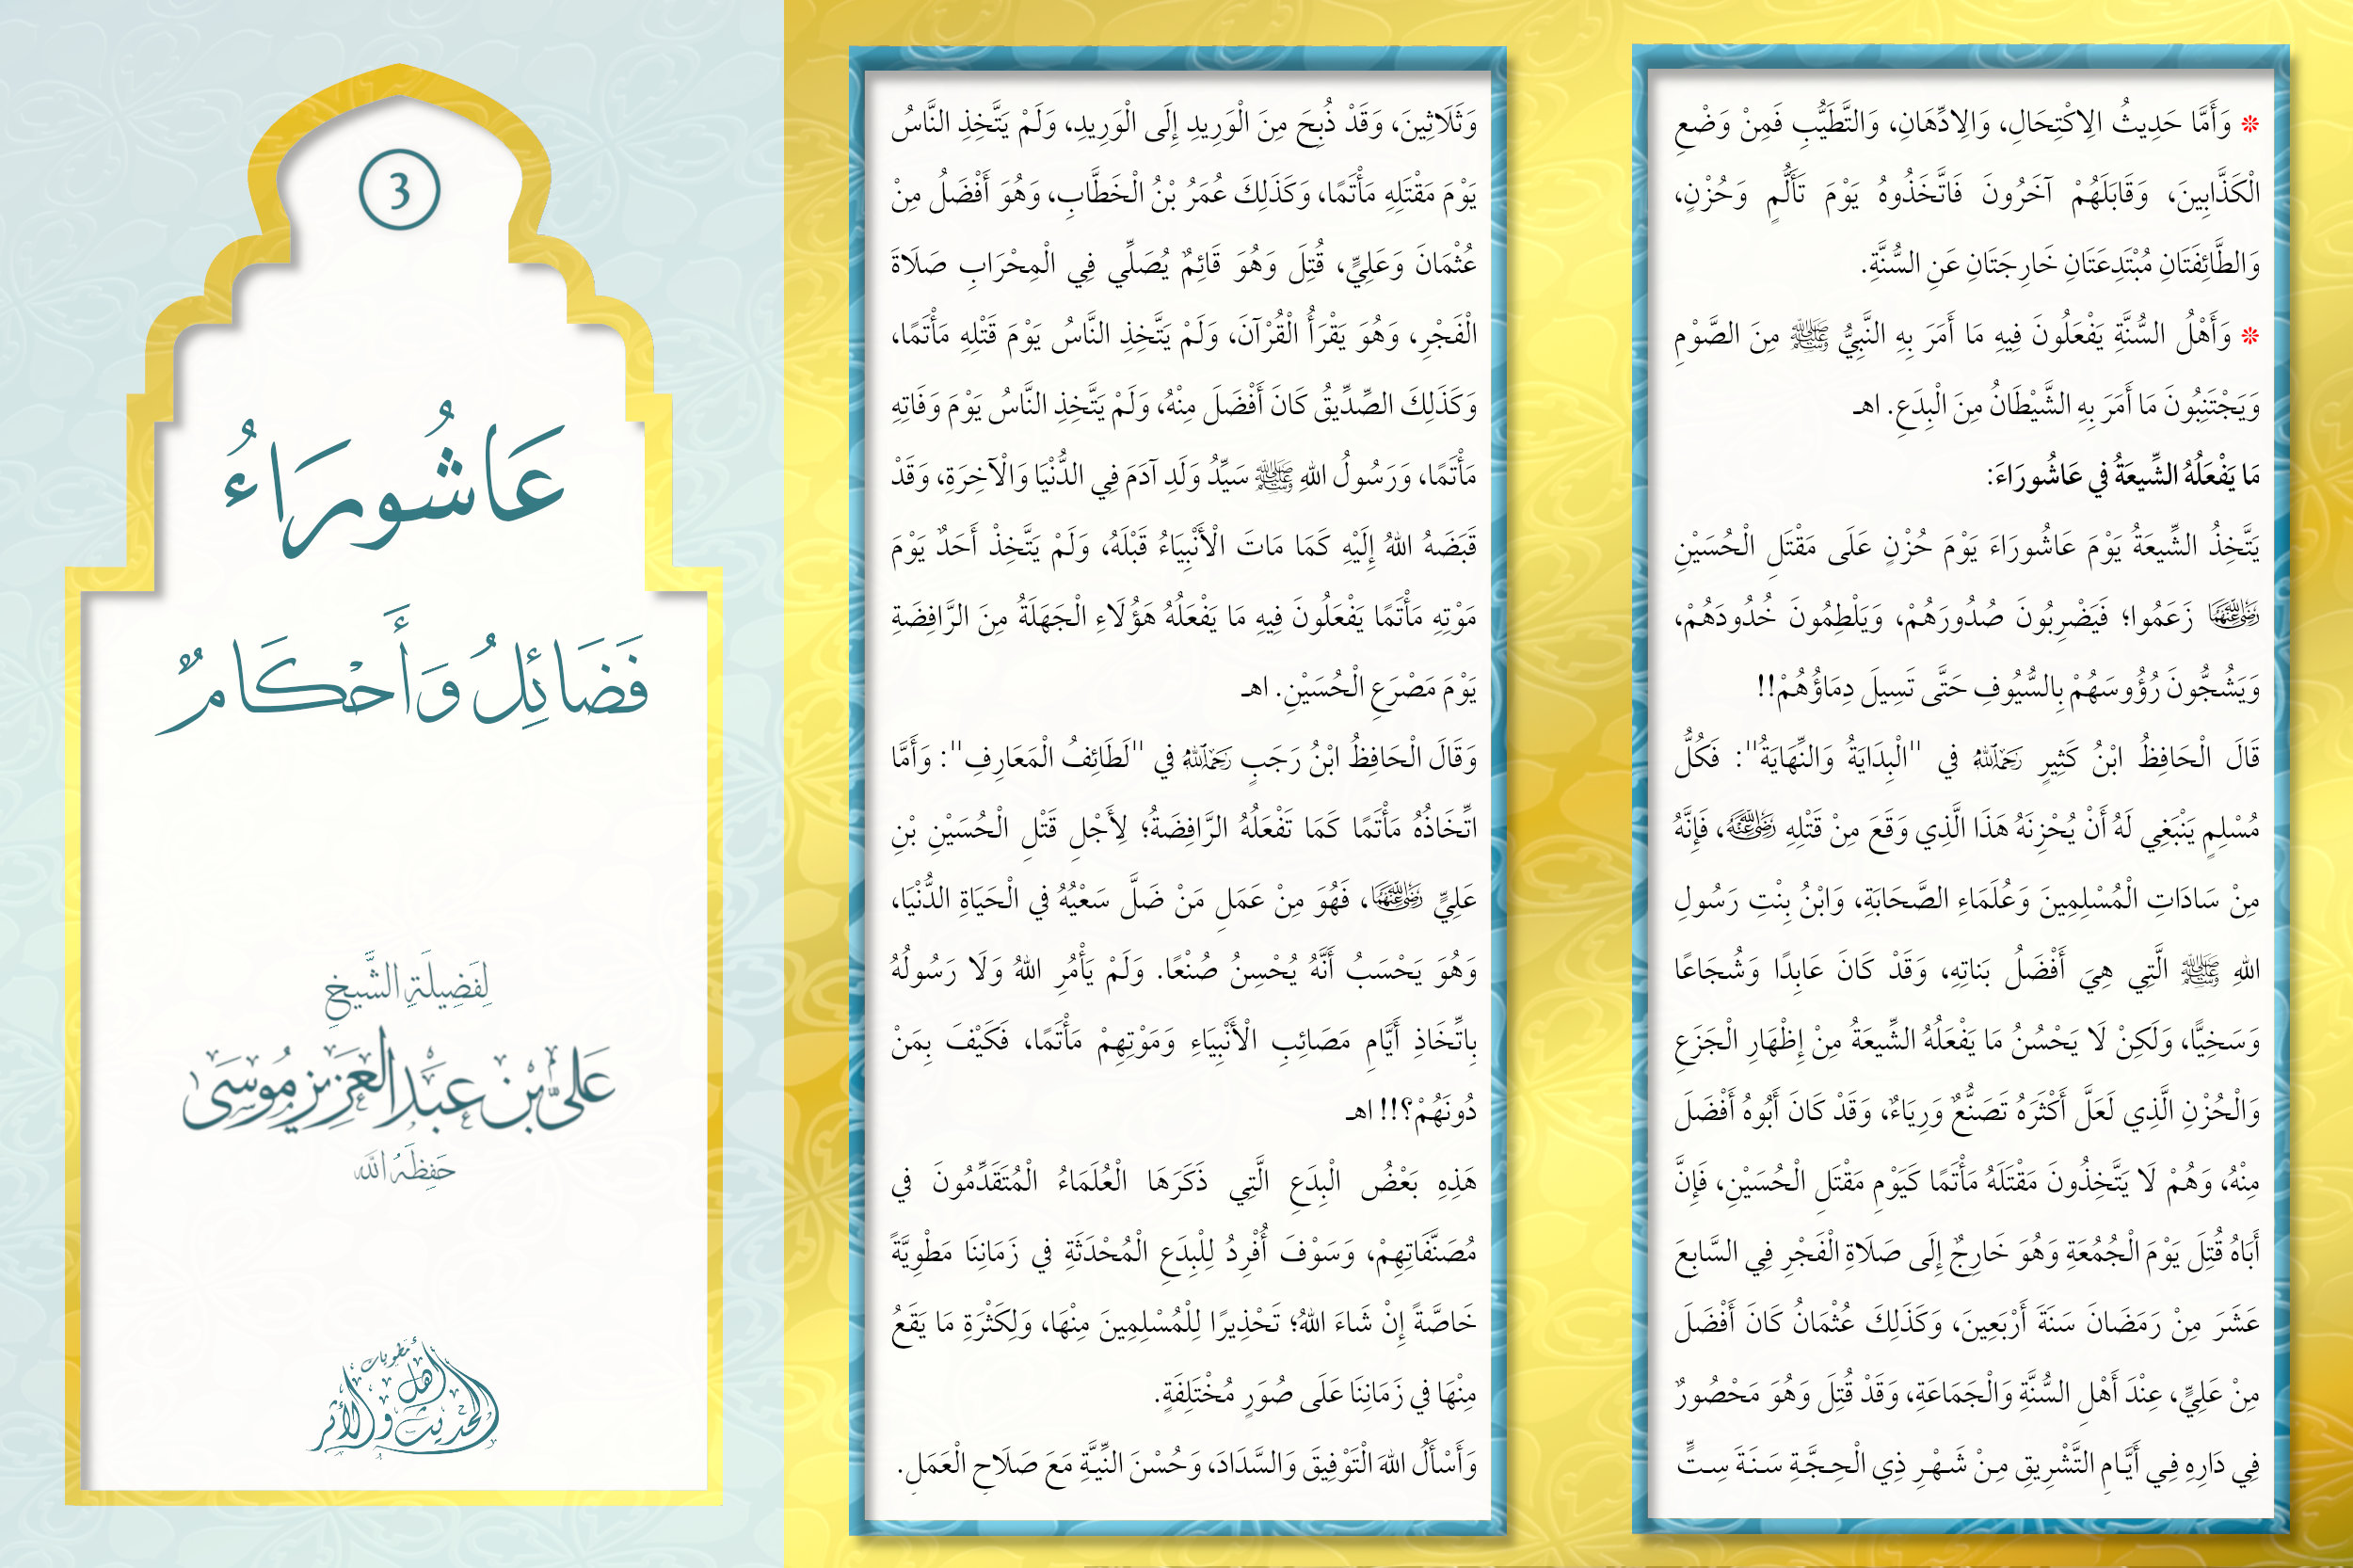 * وَأَمَّا حَدِيثُ الِاكْتِحَالِ، وَالِادِّهَانِ، وَالتَّطَيُّبِ فَمِنْ وَضْعِ
الْكَذَّابِينَ، وَقَابَلَهُمْ آخَرُونَ فَاتَّخَذُوهُ يَوْمَ تَأَلُّمٍ وَحُزْنٍ،
وَالطَّائِفَتَانِ مُبْتَدِعَتَانِ خَارِجَتَانِ عَنِ السُّنَّةِ.
* وَأَهْلُ السُّنَّةِ يَفْعَلُونَ فِيهِ مَا أَمَرَ بِهِ النَّبِيُّ ﷺ مِنَ الصَّوْمِ
وَيَجْتَنِبُونَ مَا أَمَرَ بِهِ الشَّيْطَانُ مِنَ الْبِدَعِ. اهـ
مَا يَفْعَلُهُ الشِّيعَةُ فِي عَاشُورَاءَ:
يَتَّخِذُ الشِّيعَةُ يَوْمَ عَاشُورَاءَ يَوْمَ حُزْنٍ عَلَى مَقْتَلِ الْحُسَيْنِ
رَضِيَ اللَّهُ عَنْهُمَا زَعَمُوا؛ فَيَضْرِبُونَ صُدُورَهُمْ، وَيَلْطِمُونَ خُدُودَهُمْ،
وَيَشُجُّونَ رُؤُوسَهُمْ بِالسُّيُوفِ حَتَّى تَسِيلَ دِمَاؤُهُمْ!!
قَالَ الْحَافِظُ ابْنُ كَثِيرٍ رَحِمَهُ اللَّهُ فِي "الْبِدَايَةُ وَالنِّهَايَةُ": فَكُلُّ
مُسْلِمٍ يَنْبَغِي لَهُ أَنْ يُحْزِنَهُ هَذَا الَّذِي وَقَعَ مِنْ قَتْلِهِ رَضِيَ اللَّهُ عَنْهُ، فَإِنَّهُ
مِنْ سَادَاتِ الْمُسْلِمِينَ وَعُلَمَاءِ الصَّحَابَةِ، وَابْنُ بِنْتِ رَسُولِ
اللهِ ﷺ الَّتِي هِيَ أَفْضَلُ بَنَاتِهِ، وَقَدْ كَانَ عَابِدًا وَشُجَاعًا
وَسَخِيًّا، وَلَكِنْ لَا يَحْسُنُ مَا يَفْعَلُهُ الشِّيعَةُ مِنْ إِظْهَارِ الْجَزَعِ
وَالْحُزْنِ الَّذِي لَعَلَّ أَكْثَرَهُ تَصَنُّعٌ وَرِيَاءٌ، وَقَدْ كَانَ أَبُوهُ أَفْضَلَ
مِنْهُ، وَهُمْ لَا يَتَّخِذُونَ مَقْتَلَهُ مَأْتَمًا كَيَوْمِ مَقْتَلِ الْحُسَيْنِ، فَإِنَّ
أَبَاهُ قُتِلَ يَوْمَ الْجُمُعَةِ وَهُوَ خَارِجٌ إِلَى صَلَاةِ الْفَجْرِ فِي السَّابِعَ
عَشَرَ مِنْ رَمَضَانَ سَنَةَ أَرْبَعِينَ، وَكَذَلِكَ عُثْمَانُ كَانَ أَفْضَلَ
مِنْ عَلِيٍّ، عِنْدَ أَهْلِ السُّنَّةِ وَالْجَمَاعَةِ، وَقَدْ قُتِلَ وَهُوَ مَحْصُورٌ
فِي دَارِهِ فِي أَيَّامِ التَّشْرِيقِ مِنْ شَهْرِ ذِي الْحِجَّةِ سَنَةَ سِتٍّ
وَثَلَاثِينَ، وَقَدْ ذُبِحَ مِنَ الْوَرِيدِ إِلَى الْوَرِيدِ، وَلَمْ يَتَّخِذِ النَّاسُ
يَوْمَ مَقْتَلِهِ مَأْتَمًا، وَكَذَلِكَ عُمَرُ بْنُ الْخَطَّابِ، وَهُوَ أَفْضَلُ مِنْ
عُثْمَانَ وَعَلِيٍّ، قُتِلَ وَهُوَ قَائِمٌ يُصَلِّي فِي الْمِحْرَابِ صَلَاةَ
الْفَجْرِ، وَهُوَ يَقْرَأُ الْقُرْآنَ، وَلَمْ يَتَّخِذِ النَّاسُ يَوْمَ قَتْلِهِ مَأْتَمًا،
وَكَذَلِكَ الصِّدِّيقُ كَانَ أَفْضَلَ مِنْهُ، وَلَمْ يَتَّخِذِ النَّاسُ يَوْمَ وَفَاتِهِ
مَأْتَمًا، وَرَسُولُ اللهِ ﷺ سَيِّدُ وَلَدِ آدَمَ فِي الدُّنْيَا وَالْآخِرَةِ، وَقَدْ
قَبَضَهُ اللهُ إِلَيْهِ كَمَا مَاتَ الْأَنْبِيَاءُ قَبْلَهُ، وَلَمْ يَتَّخِذْ أَحَدٌ يَوْمَ
مَوْتِهِ مَأْتَمًا يَفْعَلُونَ فِيهِ مَا يَفْعَلُهُ هَؤُلَاءِ الْجَهَلَةُ مِنَ الرَّافِضَةِ
يَوْمَ مَصْرَعِ الْحُسَيْنِ. اهـ
وَقَالَ الْحَافِظُ ابْنُ رَجَبٍ رَحِمَهُ اللَّهُ فِي "لَطَائِفُ الْمَعَارِفِ": وَأَمَّا
اتِّخَاذُهُ مَأْتَمًا كَمَا تَفْعَلُهُ الرَّافِضَةُ؛ لِأَجْلِ قَتْلِ الْحُسَيْنِ بْنِ
عَلِيٍّ رَضِيَ اللَّهُ عَنْهُمَا، فَهُوَ مِنْ عَمَلِ مَنْ ضَلَّ سَعْيُهُ فِي الْحَيَاةِ الدُّنْيَا،
وَهُوَ يَحْسَبُ أَنَّهُ يُحْسِنُ صُنْعًا. وَلَمْ يَأْمُرِ اللهُ وَلَا رَسُولُهُ
بِاتِّخَاذِ أَيَّامِ مَصَائِبِ الْأَنْبِيَاءِ وَمَوْتِهِمْ مَأْتَمًا، فَكَيْفَ بِمَنْ
دُونَهُمْ؟!! اهـ
هَذِهِ بَعْضُ الْبِدَعِ الَّتِي ذَكَرَهَا الْعُلَمَاءُ الْمُتَقَدِّمُونَ فِي
مُصَنَّفَاتِهِمْ، وَسَوْفَ أُفْرِدُ لِلْبِدَعِ الْمُحْدَثَةِ فِي زَمَانِنَا مَطْوِيَّةً
خَاصَّةً إِنْ شَاءَ اللهُ؛ تَحْذِيرًا لِلْمُسْلِمِينَ مِنْهَا، وَلِكَثْرَةِ مَا يَقَعُ
مِنْهَا فِي زَمَانِنَا عَلَى صُوَرٍ مُخْتَلِفَةٍ.
وَأَسْأَلُ اللهَ التَّوْفِيقَ وَالسَّدَادَ، وَحُسْنَ النِّيَّةِ مَعَ صَلَاحِ الْعَمَلِ.
3
عَاشُورَاءُ
فَضَائِلُ وَأَحْكَامٌ
لِفَضِيلَةِ الشَّيْخِ
عَلِيِّ بْنِ عَبْدِ الْعَزِيزِ مُوسَى
حَفِظَهُ اللَّه
مطويات
أهل
الحديث والأثر